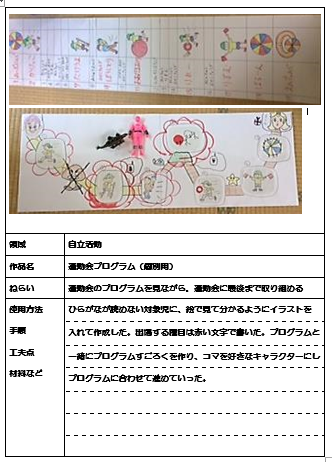 領域 自立活動
作品名 運動会プログラム（個別用）
ねらい 運動会のプログラムを見ながら、運動会に最後まで取り組める
使用方法 ひらがなが読めない対象児に、絵で見て分かるようにイラストを
手順 入れて作成した。出場する種目は赤い文字で書いた。プログラムと
工夫点 一緒にプログラムすごろくを作り、コマを好きなキャラクターにし
材料など プログラムに合わせて進めていった。